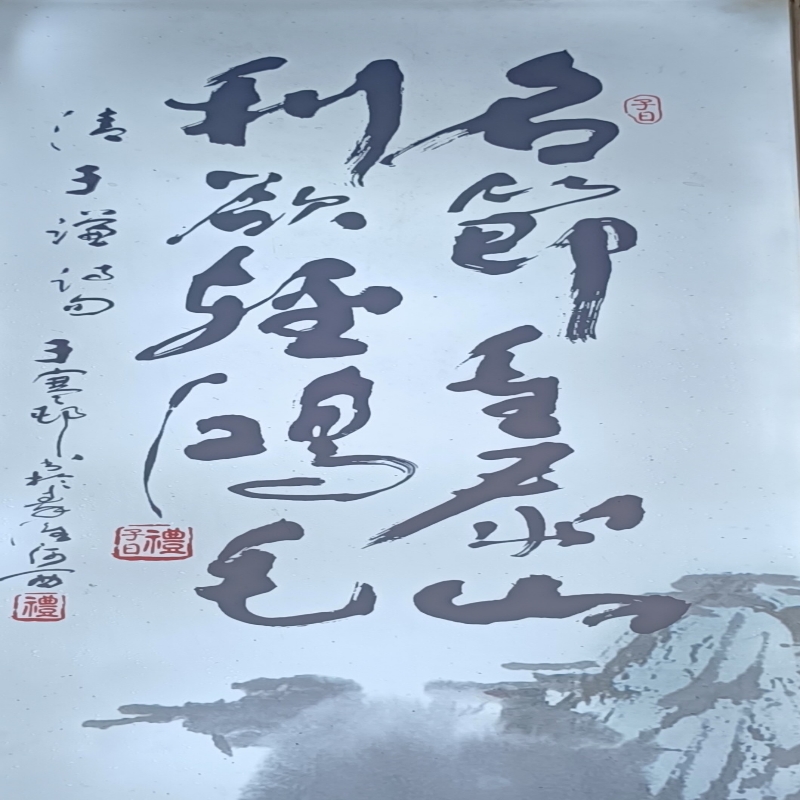 名節重泰山
利欲輕鴻毛
清于謙詩句
子曰
禮
子曰
禮